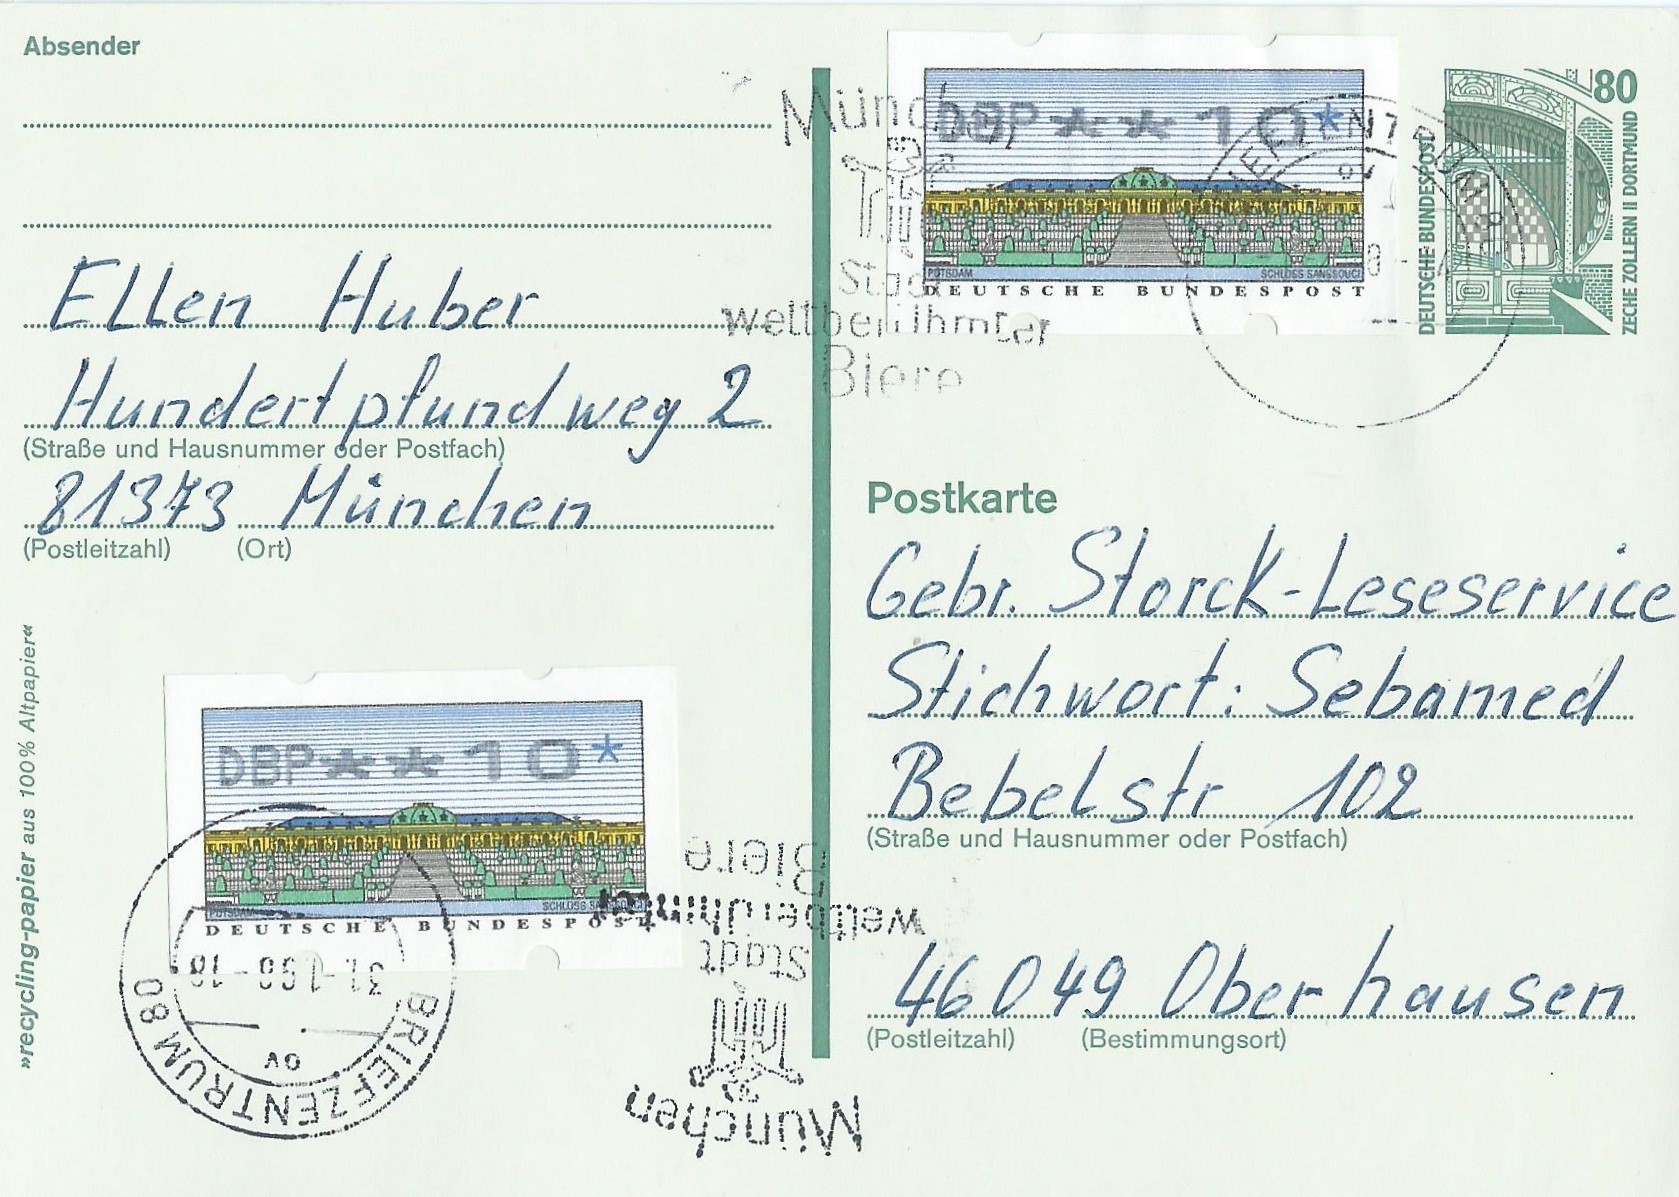 Absender
Ellen Huber
Hundertpfundweg 2
(Straße und Hausnummer oder Postfach)
81373 München
(Postleitzahl) (Ort)
»recycling-papier aus 100% Altpapier«
DBP**10*
POTSDAM SCHLOSS SANSSOUCI
DEUTSCHE BUNDESPOST
BRIEFZENTRUM 80
ov
München
Stadt
weltberühmter
Biere
München
Stadt
weltberühmter
Biere
DBP**10*
POTSDAM SCHLOSS SANSSOUCI
DEUTSCHE BUNDESPOST
80
DEUTSCHE BUNDESPOST
ZECHE ZOLLERN II DORTMUND
Postkarte
Gebr. Storck-Leseservice
Stichwort: Sebamed
Bebelstr 102
(Straße und Hausnummer oder Postfach)
46049 Oberhausen
(Postleitzahl) (Bestimmungsort)